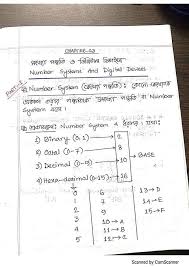 CHAPTER-03
সংখ্যা পদ্ধতি ও ডিজিটাল ডিভাইস
Number System And Digital Devices
PART-1
Number System (সংখ্যা পদ্ধতি):
পদ্ধতি বা Number
System বলে।
Number System 4 প্রকার, যথা:
1) Binary (0,1) → 2
2) Octal (0-7) → 8
3) Decimal (0-9) → 10
4) Hexa-decimal (0-15) → 16
BASE
0 6 13→D
1 7 14→E
2 8 15→F
3 9
4 10→A
5 11→B
12→C
Scanned by CamScanner